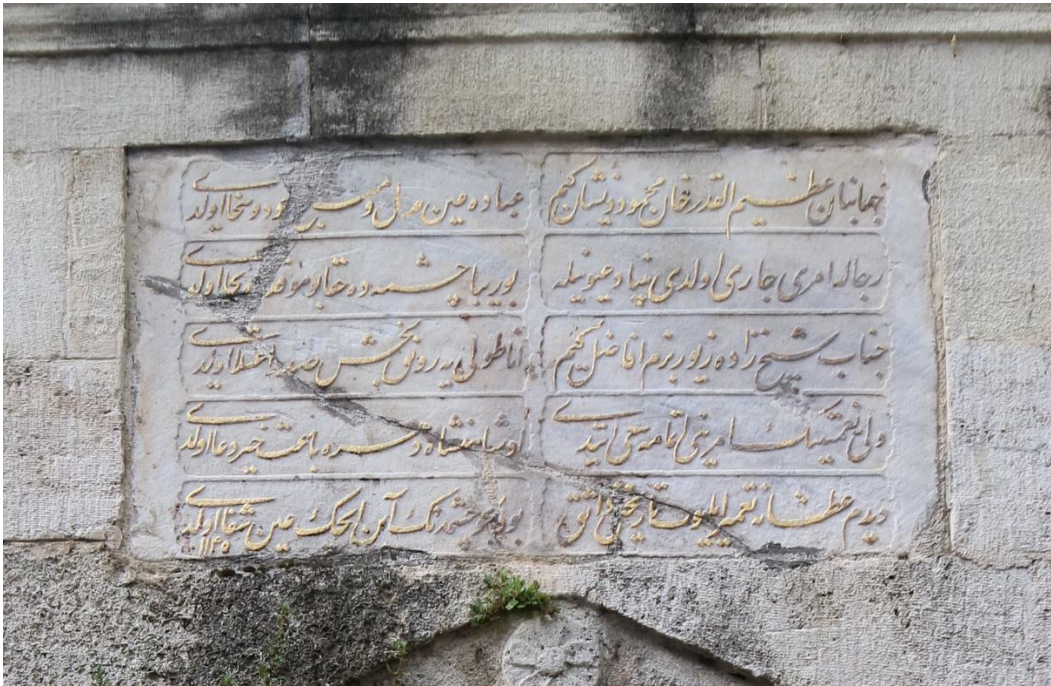 جهانبان عظيم القدر خان محمود ذيشان كيم
عباده عين عدل و جود و سخا اولدى
رجاله امرى جارى اولدى بنياد عيونيله
بو زيبا چشمه ده اولدى
جناب شيخ زاده زيور بزم افاضل كيم
اناطولى يه رونق بخش صدر اولدى
ولى نعمتينك امرينى اتمامه سعى ايتدى
او شاهنشاه دهره باعث خير دعا اولدى
ديدم عطشانه تعمير تاريخنى
بو چشمه نك آبن ايچك عين شفا اولدى
١١٤٥